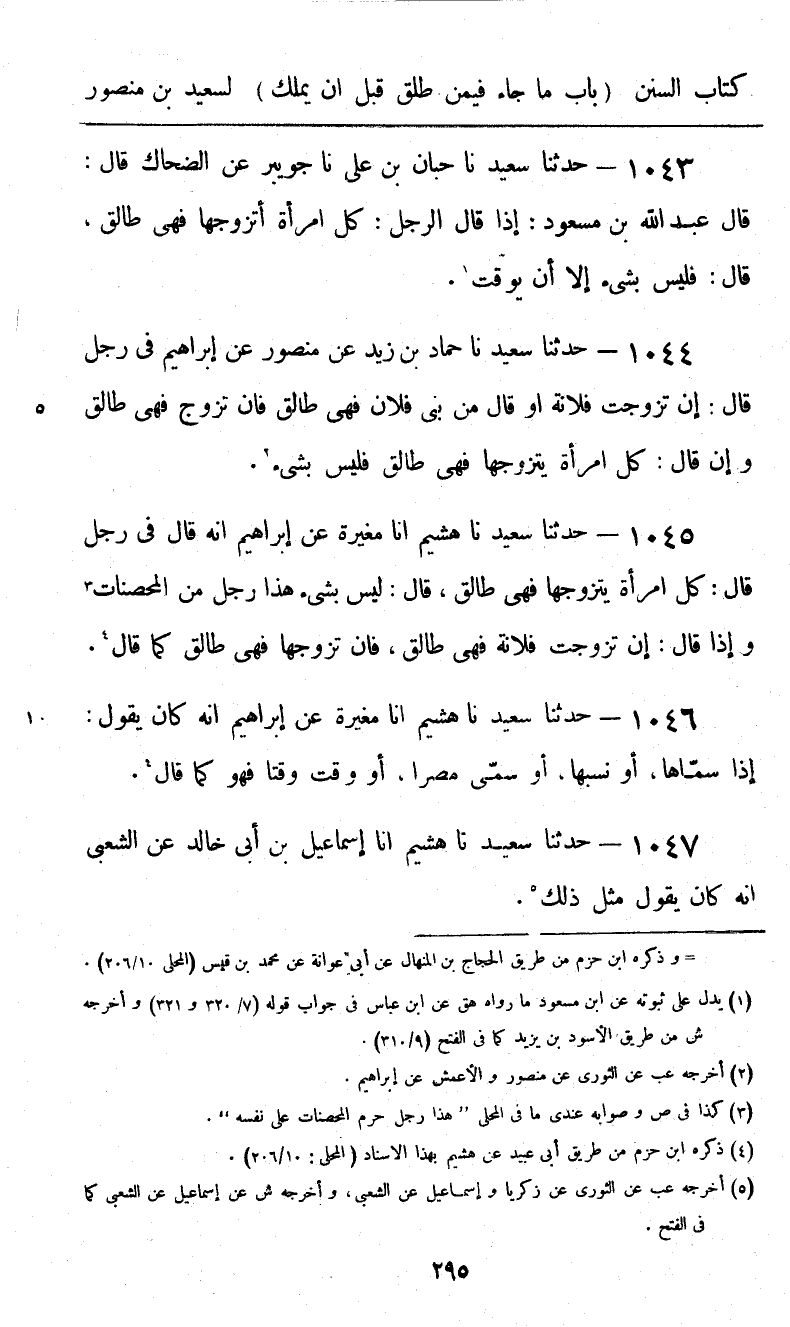 كتاب السنن (باب ما جاء فيمن طلق قبل ان يملك) لسعيد بن منصور
١٠٤٣ – حدثنا سعيد نا حبان بن على نا جويبر عن الضحاك قال :
قال عبد الله بن مسعود : إذا قال الرجل : كل امرأة أتزوجها فهى طالق ،
قال : فليس بشىء إلا أن يوقت١ .
١٠٤٤ – حدثنا سعيد نا حماد بن زيد عن منصور عن إبراهيم فى رجل
قال : إن تزوجت فلانة او قال من بنى فلان فهى طالق فان تزوج فهى طالق ٥
و إن قال : كل امرأة يتزوجها فهى طالق فليس بشىء٢ .
١٠٤٥ – حدثنا سعيد نا هشيم انا مغيرة عن إبراهيم انه قال فى رجل
قال : كل امرأة يتزوجها فهى طالق ، قال : ليس بشىء هذا رجل من المحصنات٣
و إذا قال : إن تزوجت فلانة فهى طالق ، فان تزوجها فهى طالق كما قال٤ .
١٠٤٦ – حدثنا سعيد نا هشيم انا مغيرة عن إبراهيم انه كان يقول : ١٠
إذا سمّاها، أو نسبها، أو سمّى مصرا، أو وقت وقتا فهو كما قال٤ .
١٠٤٧ – حدثنا سعيد نا هشيم انا إسماعيل بن أبى خالد عن الشعبى
انه كان يقول مثل ذلك٥ .
= و ذكره ابن حزم من طريق الحجاج بن المنهال عن أبى عوانة عن محمد بن قيس (المحلى ٢٠٦/١٠) .
(١) يدل على ثبوته عن ابن مسعود ما رواه هق عن ابن عباس فى جواب قوله (٧/ ٣٢٠ و ٣٢١) و أخرجه
ش من طريق الأسود بن يزيد كما فى الفتح (٣١٠/٩) .
(٢) أخرجه عب عن الثورى عن منصور و الأعمش عن إبراهيم .
(٣) كذا فى ص و صوابه عندى ما فى المحلى ” هذا رجل حرم المحصنات على نفسه “ .
(٤) ذكره ابن حزم من طريق أبى عبيد عن هشيم بهذا الاسناد (المحلى : ٢٠٦/١٠) .
(٥) أخرجه عب عن الثورى عن زكريا و إسماعيل عن الشعبى، و أخرجه ش عن إسماعيل عن الشعبى كما
فى الفتح .
٢٩٥